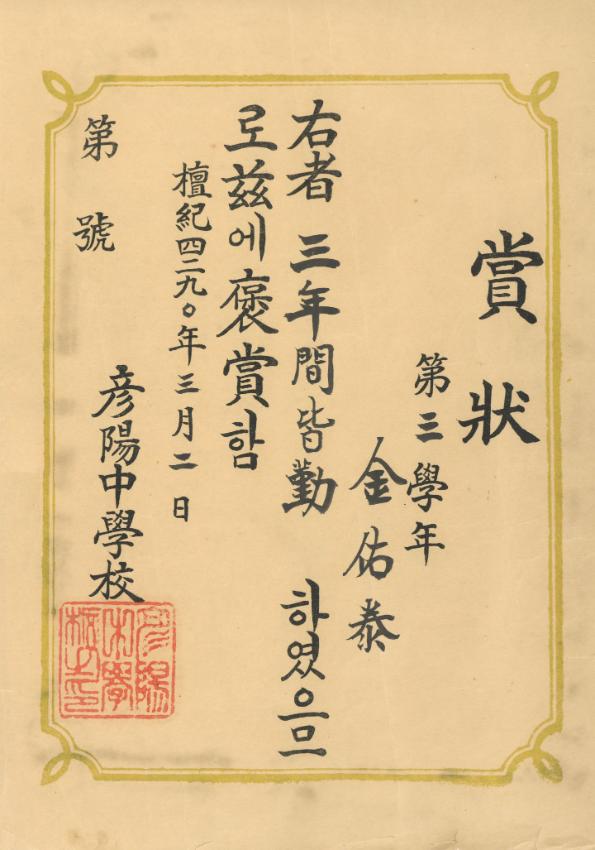 賞狀
第三學年
金佑泰
右者 三年間皆勤 하였으므
로玆에褒賞함
檀紀四二九〇年三月二日
第 號
彦陽中學校